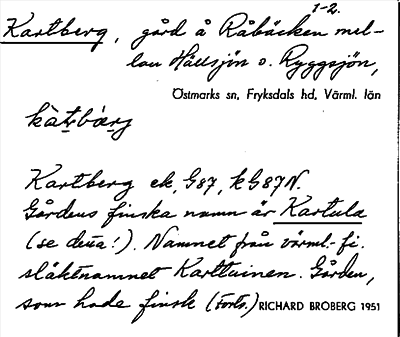 1-2.
Kartberg, gård å Råbäcken mel-
lan Hällsjön o. Ryggsjön,
Östmarks sn, Fryksdals hd, Värml. län
Kartberg ek. G87, kG87N.
Gårdens finska namn är Kartula
(se detta!). Namnet från värml.-fi.
släktnamnet Karttuinen. Gården,
som hade finsk (Forts.) RICHARD BROBERG 1951